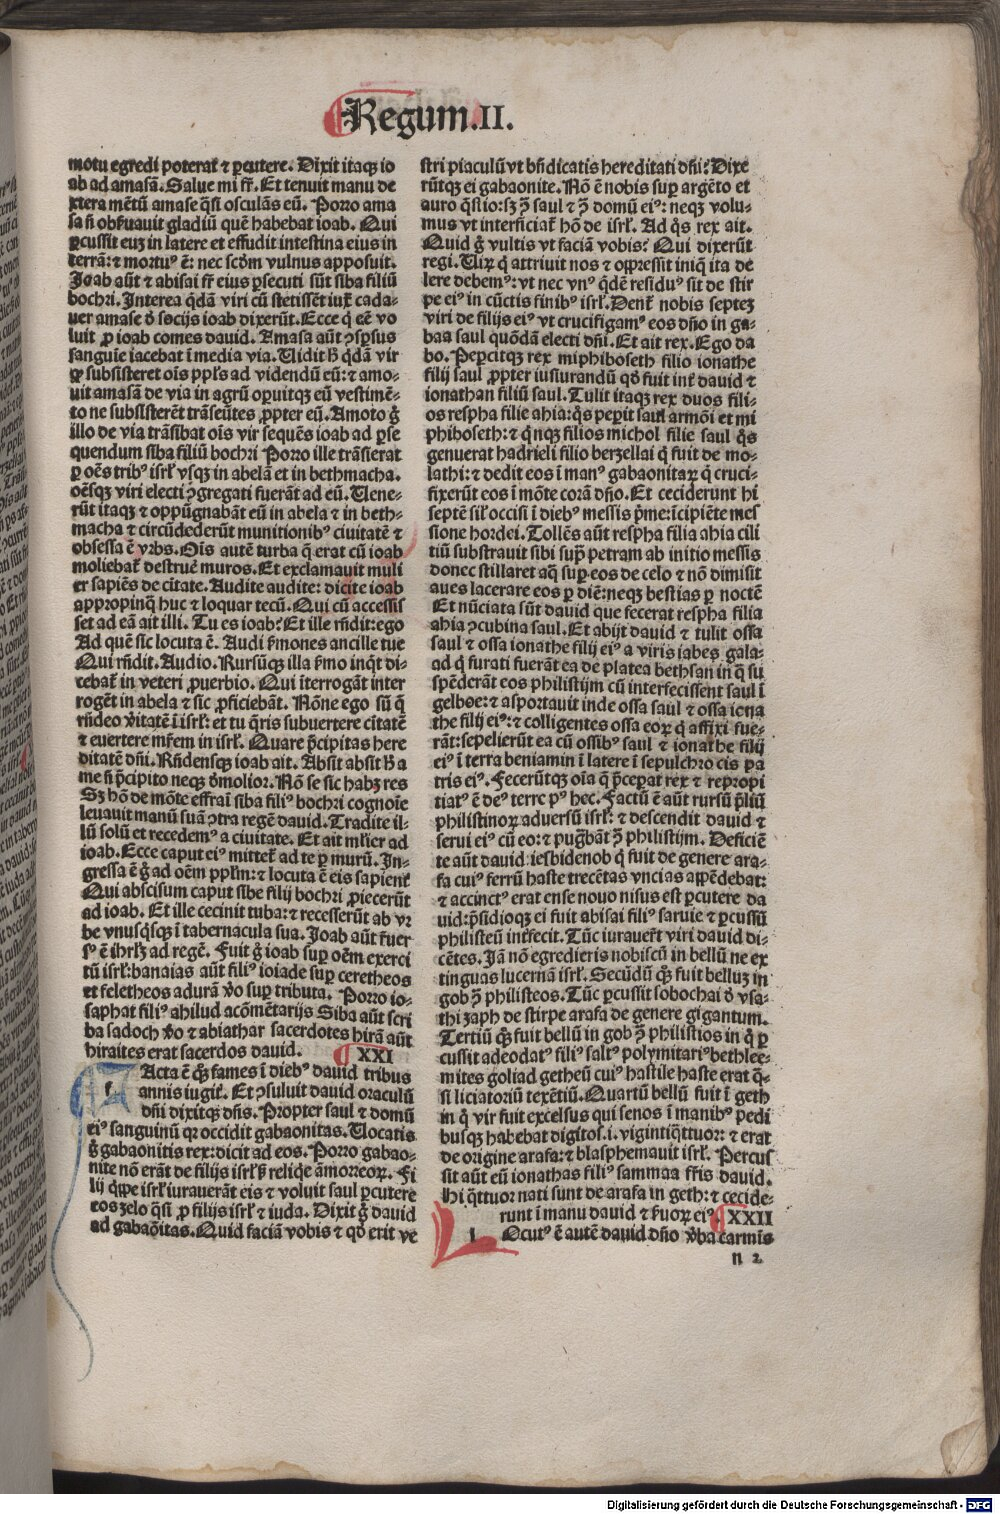 Regum.II.
motu egredi poterat᷑ ⁊ ꝑcutere. Dixit itaqꝫ io
ab ad amasā. Salue mi fr̄. Et tenuit manu de
xtera mētū amase q̄si osculās eū. Porro ama
sa nō obẜuauit gladiū quē habebat ioab. Qui
ꝑcussit euꝫ in latere et effudit intestina eius in
terrā: ⁊ mortuꝰ ē: nec scd̄m vulnus apposuit.
Joab aūt ⁊ abisai fr̄ eius ꝑsecuti sūt siba filiū
bochri. Interea q̄dā viri cū stetissēt iux̄ cada-
uer amase d̄ socijs ioab dixerūt. Ecce q̄ eē vo
luit ꝓ ioab comes dauid. Amasa aūt ꝯsꝑsus
sanguīe iacebat ī media via. Uidit h̄ q̄dā vir
ꝙ subsisteret oīs ppl̄s ad videndū eū: ⁊ amo-
uit amasā de via in agrū oꝑuitqꝫ eū vestimē-
to ne subsisterēt trāseūtes ꝓpter eū. Amoto ḡ
illo de via trāsibat oīs vir sequēs ioab ad ꝑse
quendum siba filiū bochri Porro ille trāsierat
ꝑ oēs tribꝰ isrl̄ vsqꝫ in abelā et in bethmacha.
oēsqꝫ viri electi ꝯgregati fuerāt ad eū. Uene-
rūt itaqꝫ ⁊ oppūgnabāt eū in abela ⁊ in beth-
macha ⁊ circūdederūt munitionibꝰ ciuitatē ⁊
obsessa ē vrbs. Oīs autē turba q̄ erat cū ioab
moliebat᷑ destruē muros. Et exclamauit muli
er sapiēs de cītate. Audite audite: dicite ioab
appropinq̄ huc ⁊ loquar tecū. Qui cū accessis
set ad eā ait illi. Tu es ioab? Et ille rn̄dit: ego
Ad quē sic locuta ē. Audi ẜmones ancille tue
Qui rn̄dit. Audio. Rursūqꝫ illa ẜmo inq̄t di-
cebat᷑ in veteri ꝓuerbio. Qui īterrogāt inter
rogēt in abela ⁊ sic ꝓficiebāt. Nōne ego sū q̄
rn̄deo v̄itatē ī isrl̄: et tu q̄ris subuertere cītatē
⁊ euertere mr̄em in isrl̄. Quare p̄cipitas here
ditatē dn̄i. Rn̄densqꝫ ioab ait. Absit absit h̄ a
me nō p̄cipito neqꝫ d̄molior. Nō se sic habꝫ res
Sꝫ hō de mōte effraī siba filiꝰ bochri cognoīe
leuauit manū suā ꝯtra regē dauid. Tradite il-
lū solū et recedemꝰ a ciuitate. Et ait ml̄ier ad
ioab. Ecce caput eiꝰ mittet᷑ ad te ꝑ murū. In-
gressa ē ḡ ad oēm ppl̄m: ⁊ locuta ē eis sapient᷑
Qui abscisum caput sibe filij bochri ꝓiecerūt
ad ioab. Et ille cecinit tuba: ⁊ recesserūt ab vr
be vnusq̄sqꝫ ī tabernacula sua. Joab aūt r̄uer
sꝰ ē ihrl̄ꝫ ad regē. Fuit ḡ ioab suꝑ oēm exerci
tū isrl̄: banaias aūt filiꝰ ioiade suꝑ ceretheos
et feletheos adurā v̄o suꝑ tributa. Porro io-
saphat filiꝰ ahilud acōmētarijs Siba aūt scri
ba sadoch v̄o ⁊ abiathar sacerdotes hirā aūt
hiraites erat sacerdos dauid. XXI
f Acta ē q̄ꝫ fames ī diebꝰ dauid tribus
annis iugit᷑. Et ꝯsuluit dauid oraculū
dn̄i dixitqꝫ dn̄s. Propter saul ⁊ domū
eiꝰ sanguinū qr occidit gabaonitas. Uocatis
ḡ gabaonitis rex: dicit ad eos. Porro gabao-
nite nō erāt de filijs isrl̄ ẜꝫ reliq̄e āmorreoꝝ. Fi
lij q̄ppe isrl̄ iurauerāt eis ⁊ voluit saul ꝑcutere
eos zelo q̄si ꝓ filijs isrl̄ ⁊ iuda. Dixit ḡ dauid
ad gabaōitas. Quid faciā vobis ⁊ qd̄ erit ve
stri piaculū vt bn̄dicatis hereditati dn̄i? Dixe
rūtqꝫ ei gabaonite. Nō ē nobis suꝑ argēto et
auro q̄stio: sꝫ ꝯ̄ saul ⁊ ꝯ̄ domū eiꝰ: neqꝫ volu-
mus vt interficiat᷑ hō de isrl̄. Ad q̄s rex ait.
Quid ḡ vultis vt faciā vobis? Qui dixerūt
regi. Uiꝝ q̄ attriuit nos ⁊ oppressit iniq̄ ita de
lere debemꝰ: vt nec vnꝰ q̄dē residuꝰ sit de stir
pe eiꝰ in cūctis finibꝰ isrl̄. Dent᷑ nobis septeꝫ
viri de filijs eiꝰ vt crucifigamꝰ eos dn̄o in ga-
baa saul quōdā electi dn̄i. Et ait rex. Ego da
bo. Peꝑcitqꝫ rex miphiboseth filio ionathe
filij saul ꝓpter iusiurandū qd̄ fuit int᷑ dauid ⁊
ionathan filiū saul. Tulit itaqꝫ rex duos fili-
os respha filie ahia: q̄s peꝑit saul armōi et mi
phiboseth: ⁊ q̄nqꝫ filios michol filie saul q̄s
genuerat hadrieli filio berzellai q̄ fuit de mo-
lathi: ⁊ dedit eos ī manꝰ gabaonitaꝝ q̄ cruci-
fixerūt eos ī mōte corā dn̄o. Et ceciderunt hi
septē sil̄ occisi ī diebꝰ messis p̄me: īcipiēte mes
sione hordei. Tollēs aūt respha filia ahia cili
tiū substrauit sibi supͣ petram ab initio messis
donec stillaret aq̄ suꝑ eos de celo ⁊ nō dimisit
aues lacerare eos ꝑ diē: neqꝫ bestias ꝑ noctē
Et nūciata sūt dauid que fecerat respha filia
ahia ꝯcubina saul. Et abijt dauid ⁊ tulit ossa
saul ⁊ ossa ionathe filij eiꝰ a viris iabes gala-
ad q̄ furati fuerāt ea de platea bethsan in q̄ su
spēderāt eos philistijm cū interfecissent saul ī
gelboe: ⁊ asportauit inde ossa saul ⁊ ossa iona
the filij eiꝰ: ⁊ colligentes ossa eoꝝ q̄ affixi fue-
rāt: sepelierūt ea cū ossibꝰ saul ⁊ ionathe filij
eiꝰ ī terra beniamin ī latere ī sepulchro cis pa
tris eiꝰ. Fecerūtqꝫ oīa q̄ p̄ceꝑat rex ⁊ repropi
tiatꝰ ē deꝰ terre pꝰ hec. Factū ē aūt rursū p̄liū
philistinoꝝ aduersū isrl̄: ⁊ descendit dauid ⁊
serui eiꝰ cū eo: ⁊ pug̅bāt ꝯ̄ philistijm. Deficiē
te aūt dauid: iesbidenob q̄ fuit de genere ara-
fa cuiꝰ ferrū haste trecētas vncias appēdebat:
⁊ accinctꝰ erat ense nouo nisus est ꝑcutere da
uid: p̄sidioqꝫ ei fuit abisai filiꝰ saruie ⁊ ꝑcussū
philisteū int᷑fecit. Tūc iurauer̄t viri dauid di-
cētes. Jā nō egredieris nobiscū in bellū ne ex
tinguas lucernā isrl̄. Secūdū q̄ꝫ fuit belluꝫ in
gob ꝯ̄ philisteos. Tūc ꝑcussit sobochai d̄ vsa-
thi zaph de stirpe arafa de genere gigantum.
Tertiū q̄ꝫ fuit bellū in gob ꝯ̄ philistios in q̄ ꝑ
cussit adeodatꝰ filiꝰ saltꝰ polymitariꝰ bethlee-
mites goliad getheū cuiꝰ hastile haste erat q̄-
si liciatoriū texētiū. Quartū bellū fuit ī geth
in q̄ vir fuit excelsus qui senos ī manibꝰ pedi
busqꝫ habebat digitos .i. vigintiq̄ttuor: ⁊ erat
de origine arafa: ⁊ blasphemauit isrl̄. Percus
sit aūt eū ionathas filiꝰ sammaa fr̄is dauid.
Hi q̄ttuor nati sunt de arafa in geth: ⁊ cecide-
runt ī manu dauid ⁊ ẜuoꝝ eiꝰ. XXII
l Ocutꝰ ē autē dauid dn̄o v̄ba carmīs
n 2
Digitalisierung gefördert durch die Deutsche Forschungsgemeinschaft - DFG